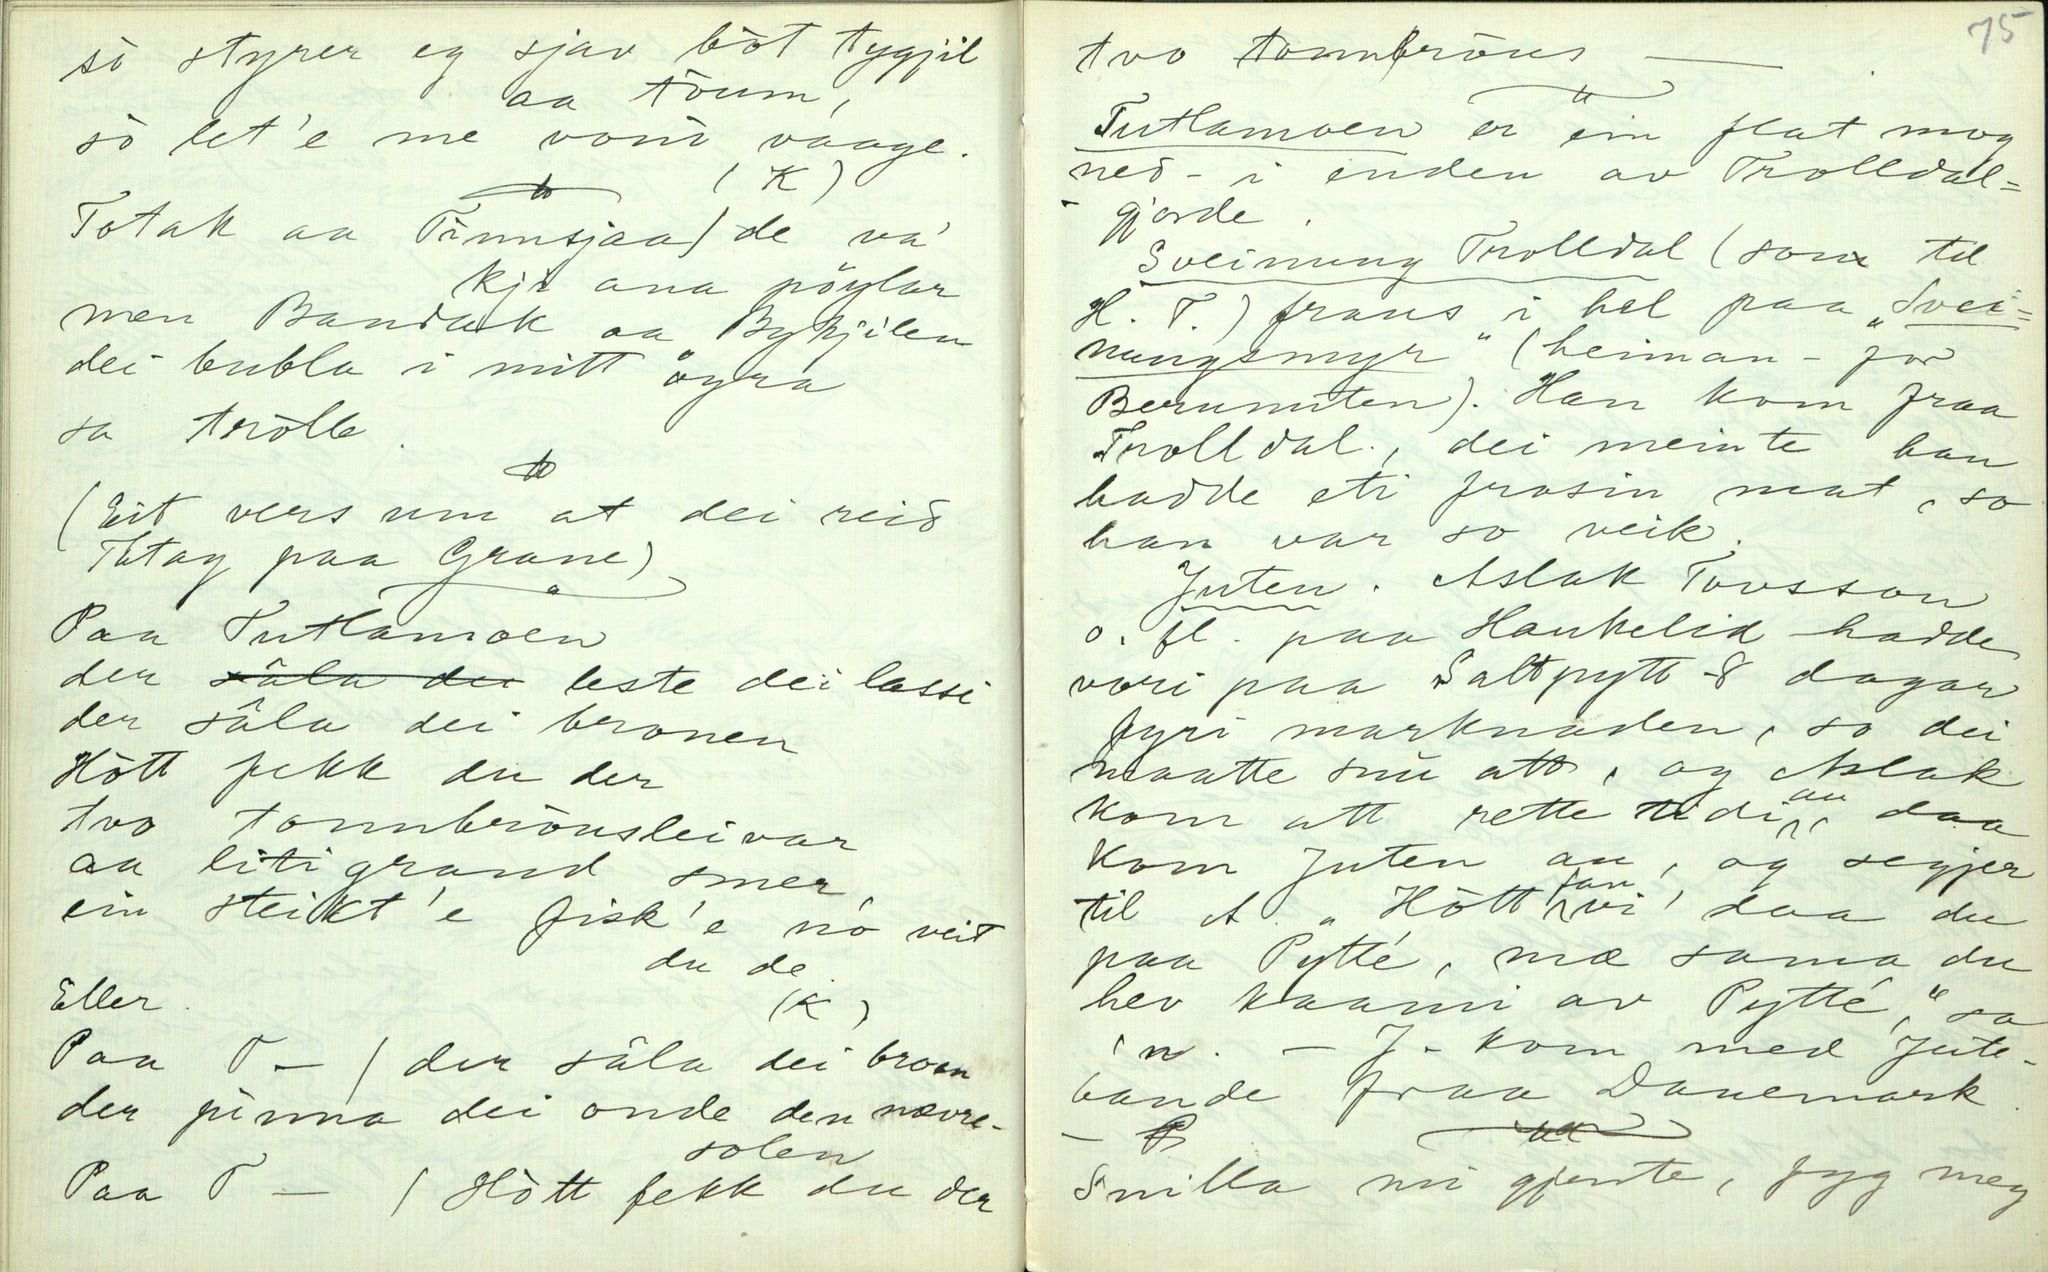 sò styrer eg sjav bòt tygjil
aa tòum,
sò let'e me vorè vaage.
(K)
Totak aa Tinnsjaa / de va'
kji ana pöylar
men Bandak aa Bykjilen
dei bubla i mitt ögra
sa tròlle.
(Eit vers um at dei reið
Totag paa Grane)
Paa Tutlamoen
der säla dei leste dei lassi
der säla dei bronen
Hòtt fekk du der
tvo tonnbröusleivar
aa litigrand smer,
ein steikt'e fisk'e nò veit
du de.
(K)
Eller.
Paa T – / der säla dei broen
der pinna dei onde den nævre-
solen
Paa T – / Hòtt fekk du der
75
tvo tonnbröus —
Tutlamoen er ein flat mog
neð i enden av Trolldal=
gjorde.
Sveinung Trolldal (son til
H. T.) fraus i hel paa "Svei=
nungsmyr" (heiman-for
Berunuten). Han kom fraa
Trolldal, dei meinte han
hadde eti frosin mat, so
han var so veik.
Juten. Aslak Tovsson
o. fl. paa Haukelid hadde
vori paa Saltpytt 8 dagar
fyri marknaden, so dei
maatte snu att, og Aslak
kom att rette tidi, daa
kom Juten au, og segjer
til A. "Hòtt vi' daa du
paa Pytté, mæ sama du
hev kaami av Pytté," sa
'n. – J. kom med Jute-
bande fraa Danemark.
Snilla mi gjente, fyg meg